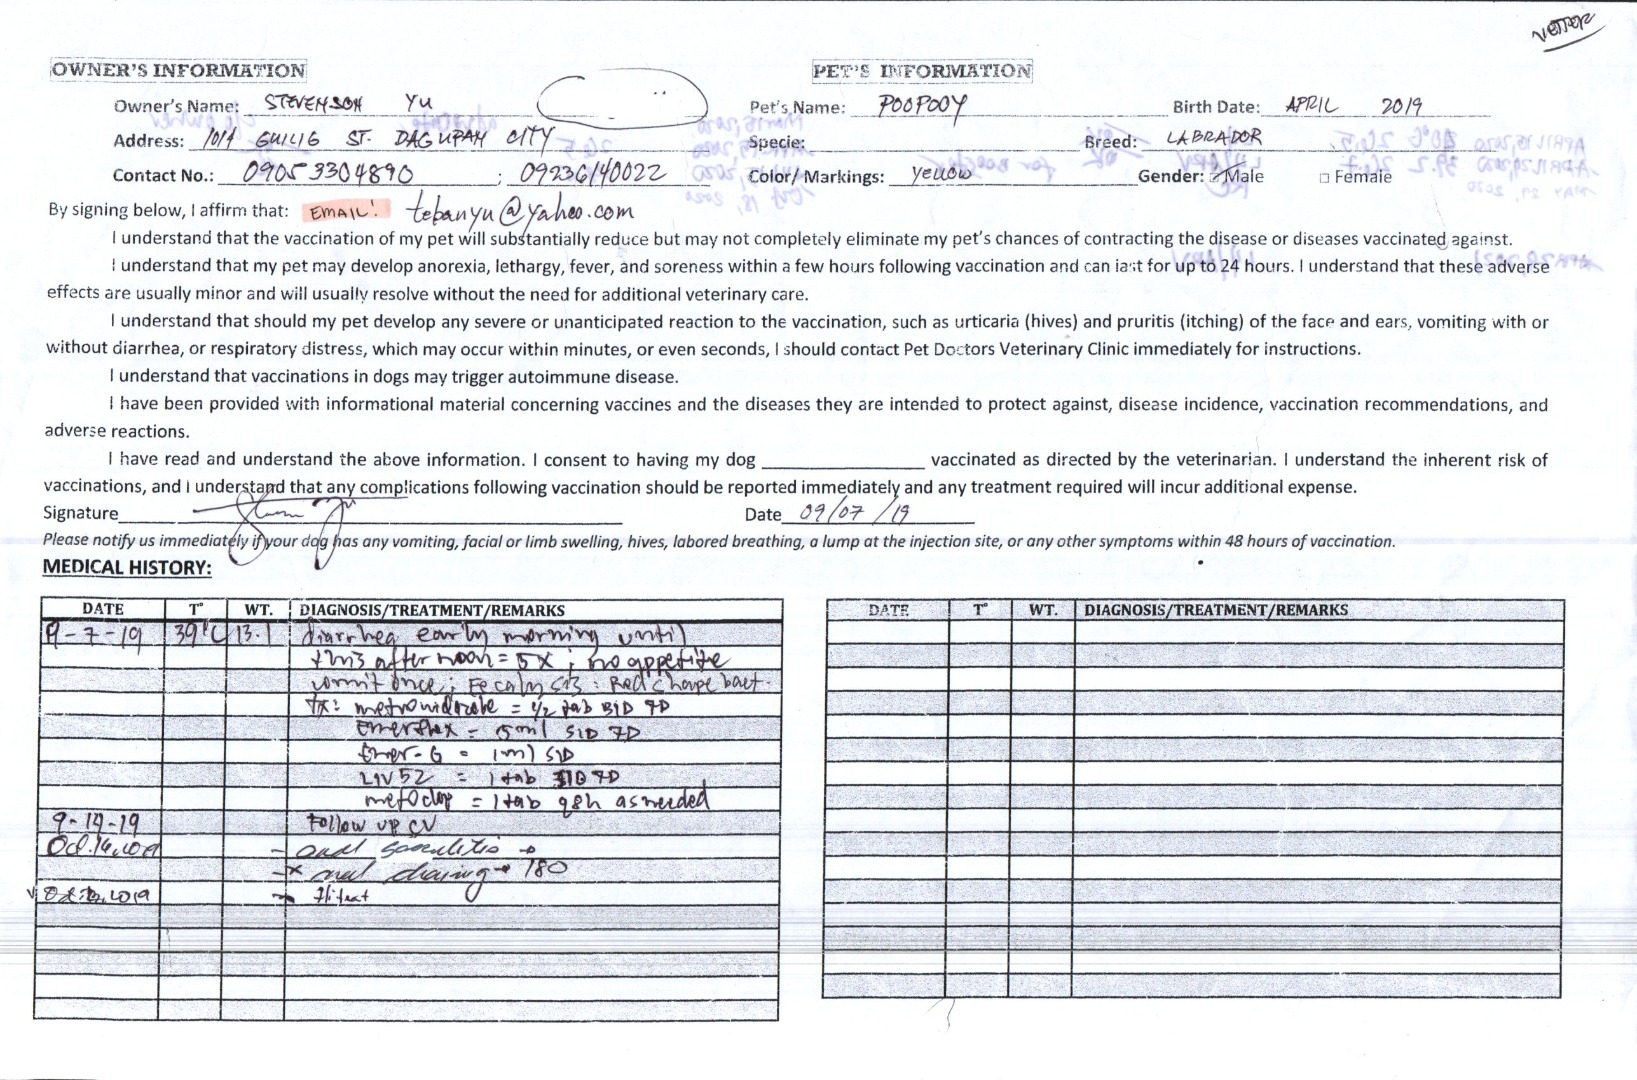 OWNER'S INFORMATION
Owner's Name: STEVENSON YU
Address: 101A GUILIG ST. DAGUPAN CITY
Contact No.: 09053304890 ; 09236140022
PET'S INFORMATION
Pet's Name: POOPOOY Birth Date: APRIL 2019
Specie: Breed: LABRADOR
Color/ Markings: yellow Gender: ☑Male □ Female
By signing below, I affirm that: EMAIL: tebanyu@yahoo.com
I understand that the vaccination of my pet will substantially reduce but may not completely eliminate my pet's chances of contracting the disease or diseases vaccinated against.
I understand that my pet may develop anorexia, lethargy, fever, and soreness within a few hours following vaccination and can last for up to 24 hours. I understand that these adverse
effects are usually minor and will usually resolve without the need for additional veterinary care.
I understand that should my pet develop any severe or unanticipated reaction to the vaccination, such as urticaria (hives) and pruritis (itching) of the face and ears, vomiting with or
without diarrhea, or respiratory distress, which may occur within minutes, or even seconds, I should contact Pet Doctors Veterinary Clinic immediately for instructions.
I understand that vaccinations in dogs may trigger autoimmune disease.
I have been provided with informational material concerning vaccines and the diseases they are intended to protect against, disease incidence, vaccination recommendations, and
adverse reactions.
I have read and understand the above information. I consent to having my dog ______________ vaccinated as directed by the veterinarian. I understand the inherent risk of
vaccinations, and I understand that any complications following vaccination should be reported immediately and any treatment required will incur additional expense.
Signature Date 09/07/19
Please notify us immediately if your dog has any vomiting, facial or limb swelling, hives, labored breathing, a lump at the injection site, or any other symptoms within 48 hours of vaccination.
MEDICAL HISTORY:
DATE T° WT. DIAGNOSIS/TREATMENT/REMARKS
9-7-19 39°C 13.1 diarrhea early morning until
this afternoon = 5x ; no appetite
vomit once ; Fecalysis : Rod shape bact.
Tx: metronidazole = 1/2 tab BID 7D
Enerflex = 5ml SID 7D
Ener-G = 1ml SID
LIV52 = 1 tab SID 7D
metoclop = 1 tab q8h as needed
9-14-19 Follow up CV
- oral
180
DATE T° WT. DIAGNOSIS/TREATMENT/REMARKS